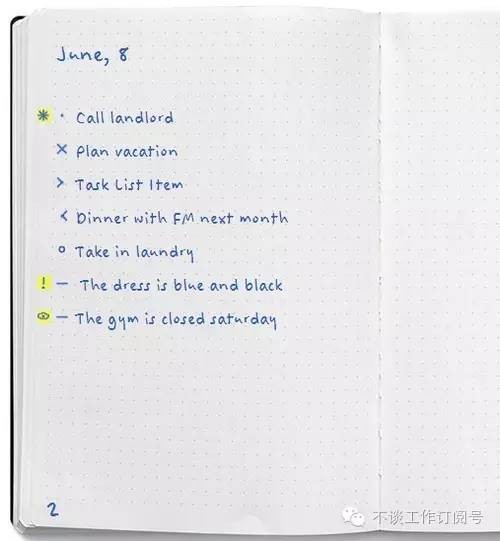 June, 8
* · Call landlord
× Plan vacation
> Task List Item
< Dinner with FM next month
o Take in laundry
! – The dress is blue and black
– The gym is closed saturday
2
不谈工作订阅号